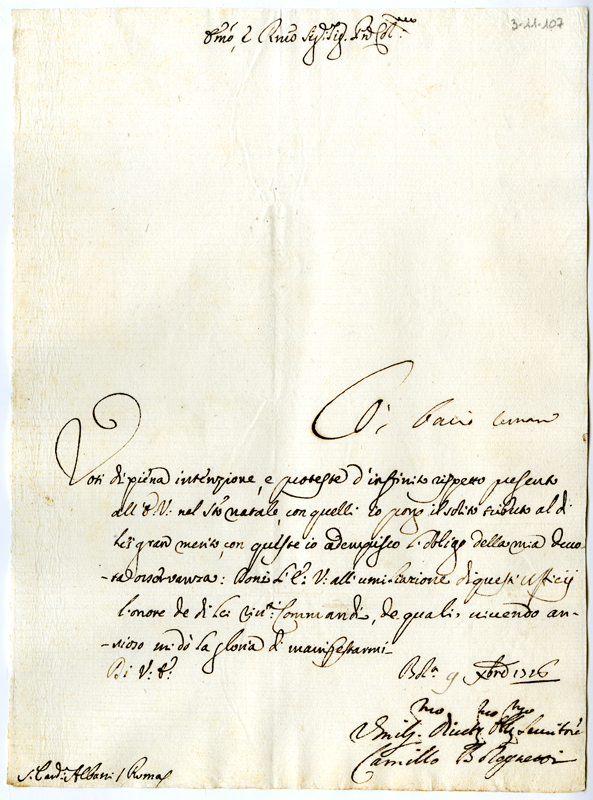 3-11-107
Emo, e Rmo Sig. Sig. Pne Col.mo
Voti di piena intenzione, e proteste d'infinito rispetto presento
all'E. V. nel Sto natale, con quelli io porgo il solito tributo al di
Lei gran merito, con queste io adempisco l'obligo della mia devo-
-ta osservanza: Doni l'E. V. all'umiliazione di questi ufficij
l'onore de di Lei Commandi, de quali vivendo an-
-sioso mi dò la gloria di manifestarmi
Di V. E.
Bola 9 Xbre 1726
Umilmo Divotmo Servitore
Camillo Bolognetti
S. Card. Albani / Roma